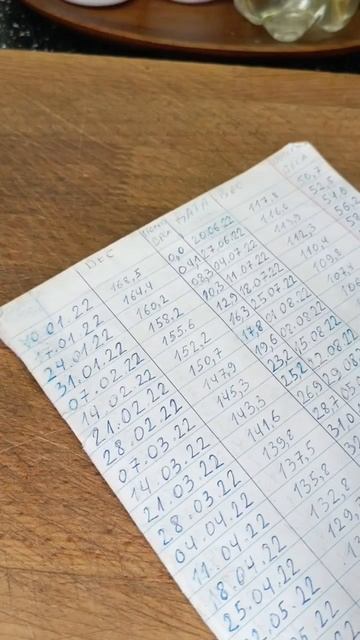 ВЕС ДАТА ВЕС
10.01.22 168,5 0,0 20.06.22 117,8 50,7
17.01.22 164,4 04,1 27.06.22 116,6
24.01.22 160,2 08,3 04.07.22 113,9
31.01.22 158,2 10,3 11.07.22 112,3
07.02.22 155,6 12,9 18.07.22 110,4
14.02.22 152,2 16,3 25.07.22 109,8
21.02.22 150,7 17,8 01.08.22
28.02.22 147,9 19,6 08.08.22
07.03.22 145,3 23,2 15.08.22
14.03.22 143,3 25,2 22.08.22
21.03.22 141,6 26,9
28.03.22 139,8 28,7
04.04.22 137,5 31,0
11.04.22 135,8
18.04.22 132,8
25.04.22